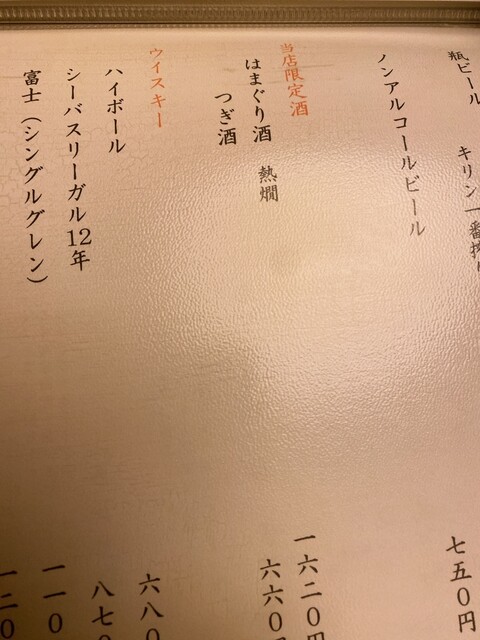 瓶ビール キリン一番
ノンアルコールビール 七五〇円
当店限定酒
はまぐり酒 熱燗 一六二〇円
つぎ酒 六六〇円
ウイスキー
ハイボール 六八〇
シーバスリーガル12年 八七〇
富士（シングルグレン） 一一〇
一二〇